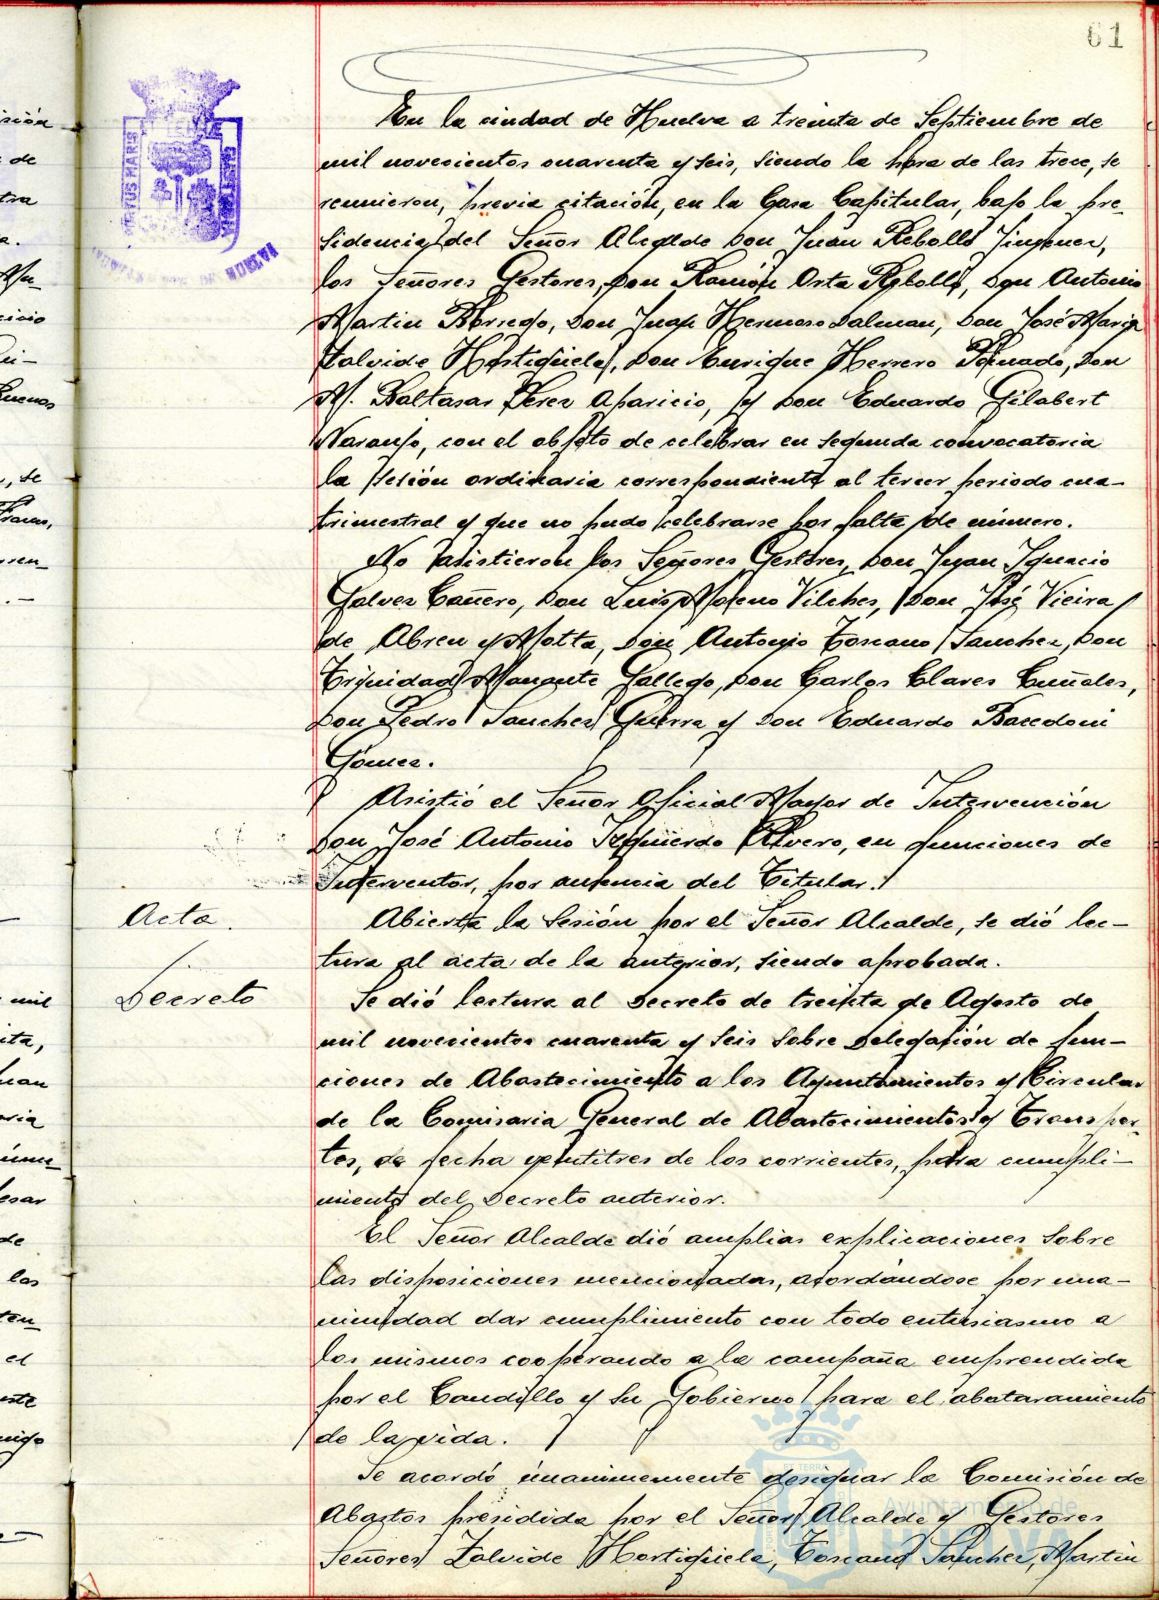 61
En la ciudad de Huelva a treinta de Septiembre de
mil novecientos cuarenta y seis, siendo la hora de las trece, se
reunieron, previa citación, en la Casa Capitular, bajo la pre-
sidencia del Señor Alcalde Don Juan Rebollo Jimenez,
los Señores Gestores, Don Ramón Orta Rebollo, Don Antonio
Martin Borrego, Don Juan Hermoso Dalman, Don José Maria
Zalvide Hortigüela, Don Enrique Herrero Peinado, Don
M. Baltasar Perez Aparicio, y Don Eduardo Gilabert
Naranjo, con el objeto de celebrar en segunda convocatoria
la sesión ordinaria correspondiente al tercer periodo cua-
trimestral y que no pudo celebrarse por falta de número.
No asistieron los Señores Gestores, Don Juan Ignacio
Galvez Cañero, Don Luis Moreno Vilches, Don José Vieira
de Abreu y Motta, Don Antonio Toscano Sanchez, Don
Trinidad Manante Gallego, Don Carlos Clares Cuñales,
Don Pedro Sanchez Guerra y Don Eduardo Bacedoni
Gómez.
Asistió el Señor Oficial Mayor de Intervención
Don José Antonio Izquierdo Rivero, en funciones de
Interventor, por ausencia del Titular.
Acta.
Abierta la Sesión por el Señor Alcalde, se dió lec-
tura al acta de la anterior, siendo aprobada.
Decreto
Se dió lectura al Decreto de treinta de Agosto de
mil novecientos cuarenta y seis sobre Delegación de fun-
ciones de Abastecimiento a los Ayuntamientos y Circular
de la Comisaria General de Abastecimientos y Transpor-
tes, de fecha veintitres de los corrientes, para cumpli-
miento del Decreto anterior.
El Señor Alcalde dió amplias explicaciones sobre
las disposiciones mencionadas, acordándose por una-
nimidad dar cumplimiento con todo entusiasmo a
los mismos cooperando a la campaña emprendida
por el Caudillo y su Gobierno para el abataramiento
de la vida.
Se acordó unanimemente designar la Comisión de
Abastos presidida por el Señor Alcalde y Gestores
Señores Zalvide Hortigüela, Toscano Sanchez, Martin
Ayuntamiento de
HUELVA